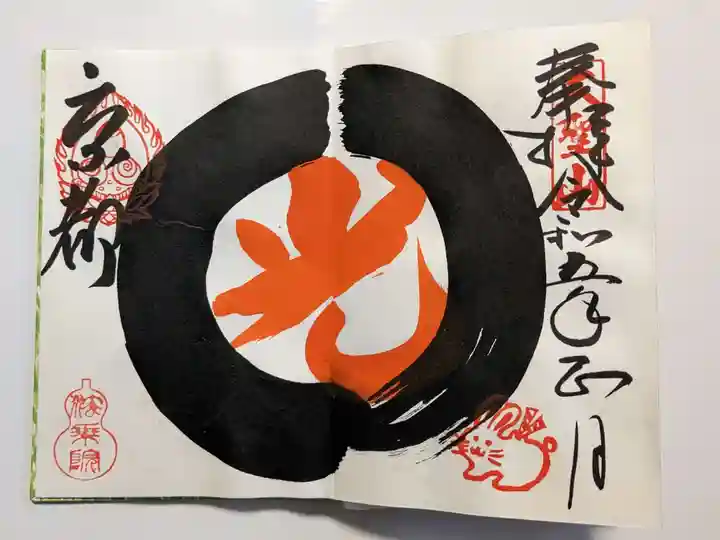 奉拝 令和五年正月
光
京都